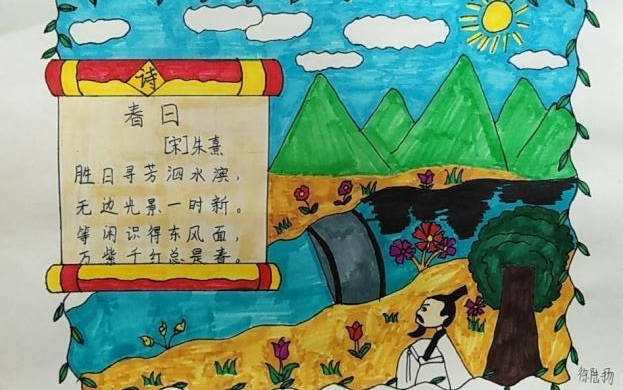 诗
春日
[宋]朱熹
胜日寻芳泗水滨，
无边光景一时新。
等闲识得东风面，
万紫千红总是春。